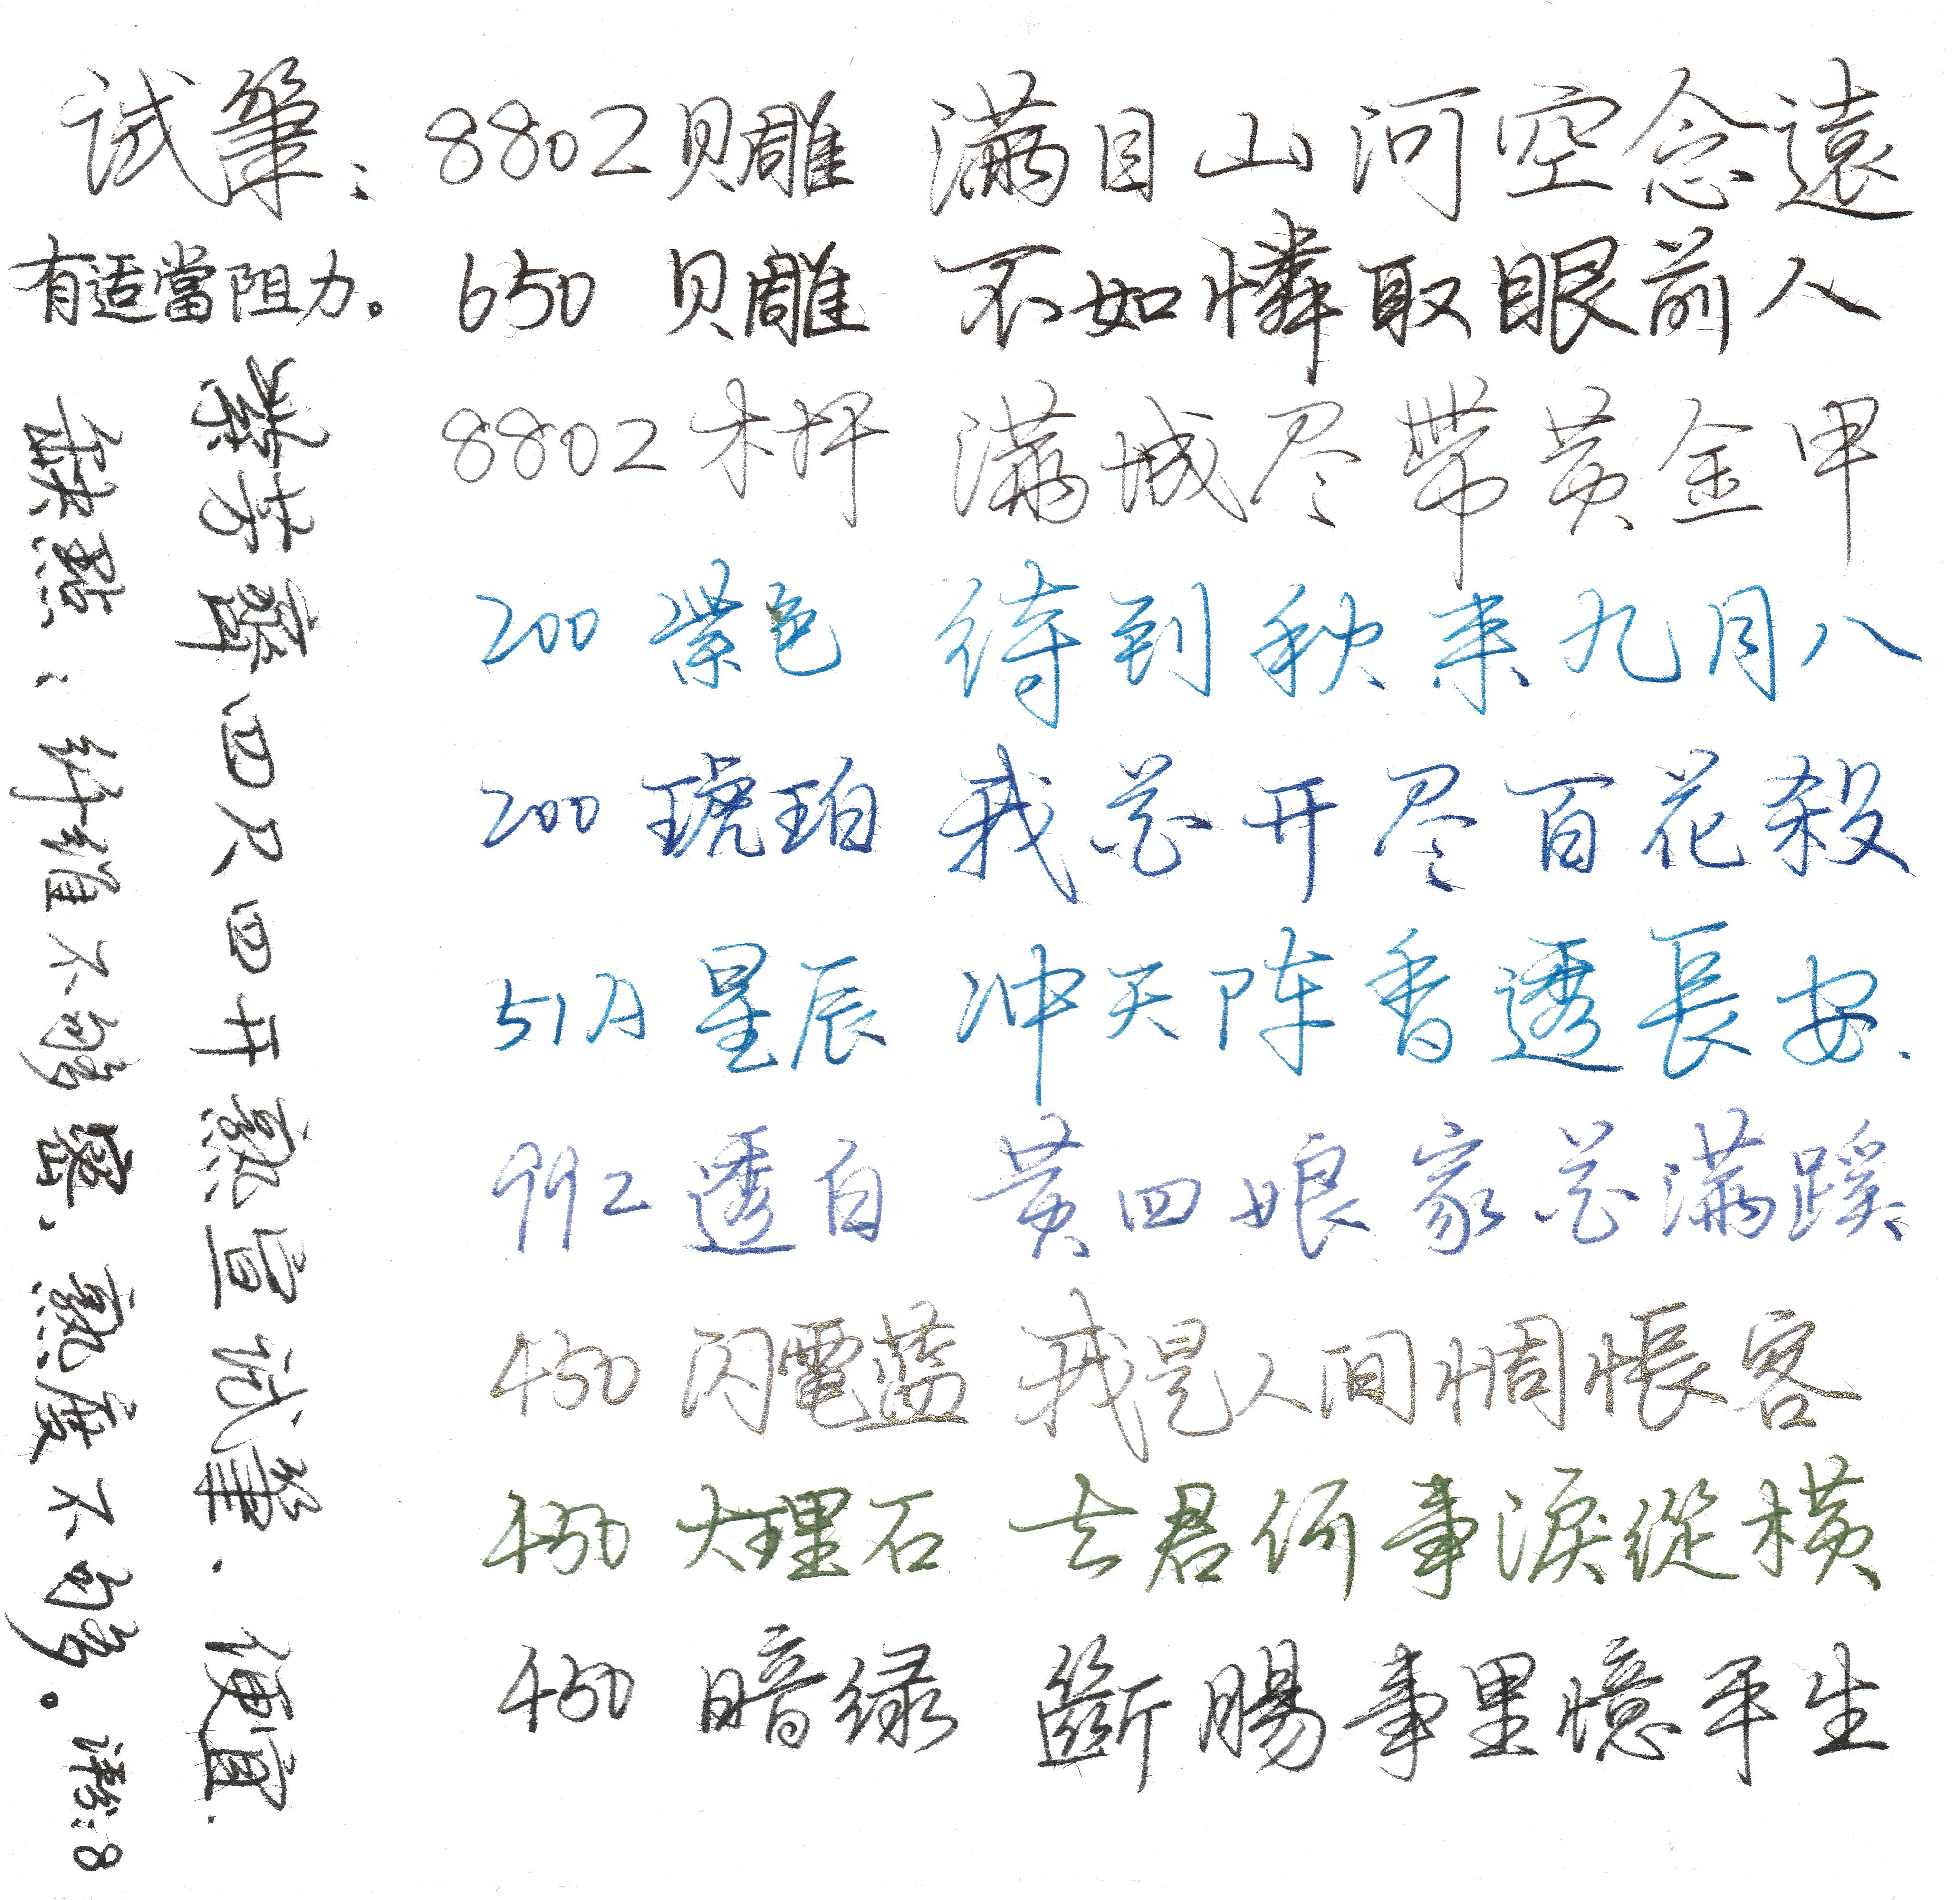 试筆：
8802 贝雕 满目山河空念遠
有适當阻力。
650 贝雕 不如憐取眼前人
8802 木杆 满城尽帶黄金甲
200 紫色 待到秋来九月八
200 琥珀 我花开尽百花殺
517A 星辰 冲天阵香透長安.
992 透白 黄四娘家花满蹊
450 闪電蓝 我是人间惆悵客
450 大理石 去君何事淚從横
450 暗绿 斷腸事里憶平生
紫芳齋四尺四开熟宣试筆、便宜.
缺點：纤維不够密、熟度不够。 评分:8